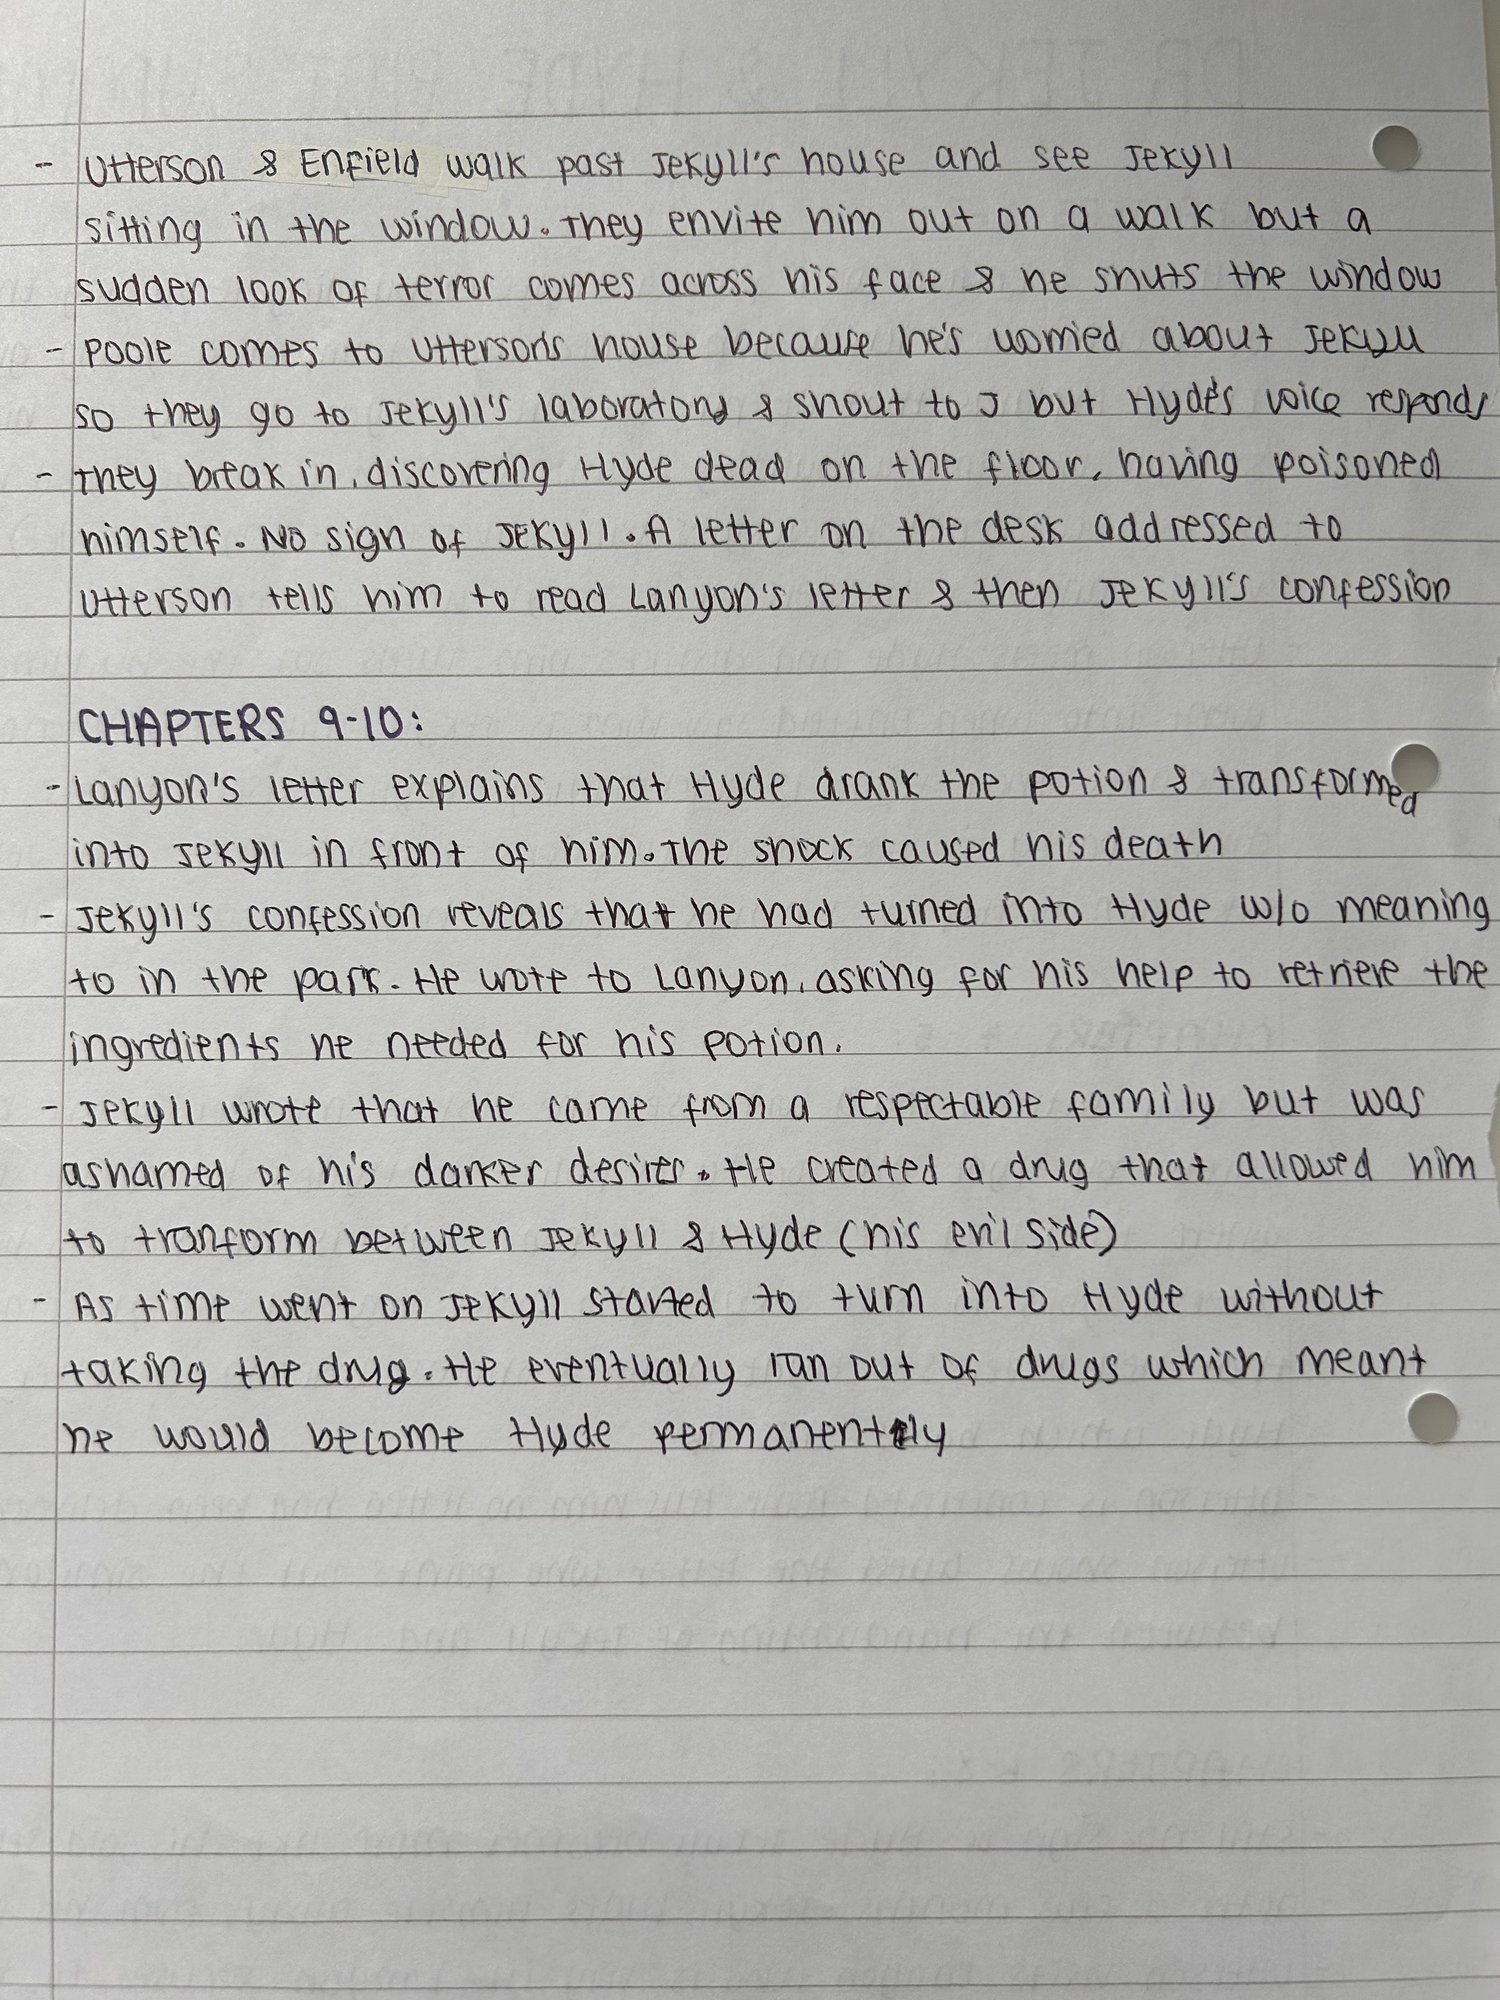 - Utterson & Enfield walk past Jekyll's house and see Jekyll
sitting in the window. They envite him out on a walk but a
sudden look of terror comes across his face & he shuts the window
- Poole comes to Utterson's house because he's worried about Jekyll
so they go to Jekyll's laboratory & shout to J but Hyde's voice responds
- They break in, discovering Hyde dead on the floor, having poisoned
himself. No sign of Jekyll. A letter on the desk addressed to
Utterson tells him to read Lanyon's letter & then Jekyll's confession
CHAPTERS 9-10:
- Lanyon's letter explains that Hyde drank the potion & transformed
into Jekyll in front of him. The shock caused his death
- Jekyll's confession reveals that he had turned into Hyde w/o meaning
to in the park. He wrote to Lanyon, asking for his help to retrieve the
ingredients he needed for his potion.
- Jekyll wrote that he came from a respectable family but was
ashamed of his darker desires. He created a drug that allowed him
to tranform between Jekyll & Hyde (his evil side)
- As time went on Jekyll started to turn into Hyde without
taking the drug. He eventually ran out of drugs which meant
he would become Hyde permanently